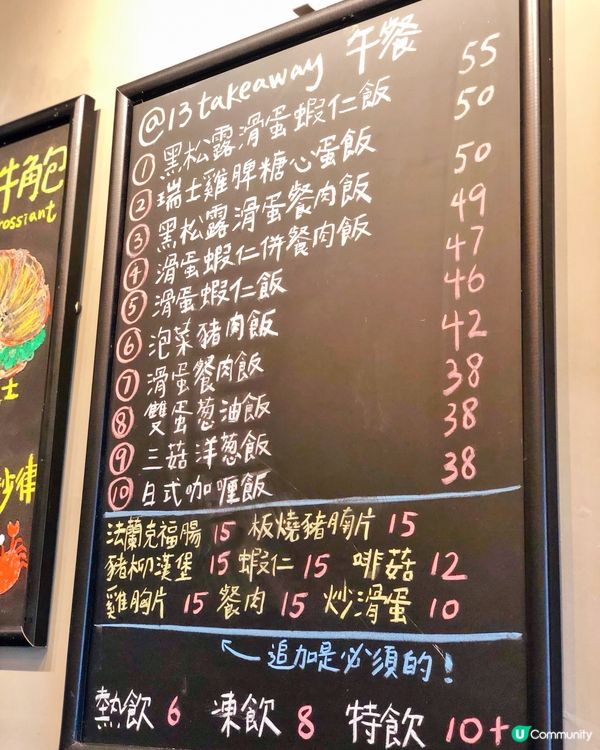 @13takeaway 午餐
① 黑松露滑蛋蝦仁飯 55
② 瑞士雞脾糖心蛋飯 50
③ 黑松露滑蛋餐肉飯 50
④ 滑蛋蝦仁併餐肉飯 49
⑤ 滑蛋蝦仁飯 47
⑥ 泡菜豬肉飯 46
⑦ 滑蛋餐肉飯 42
⑧ 雙蛋葱油飯 38
⑨ 三菇洋葱飯 38
⑩ 日式咖喱飯 38
法蘭克福腸 15 板燒豬腩片 15
豬柳漢堡 15 蝦仁 15 啡菇 12
雞胸片 15 餐肉 15 炒滑蛋 10
追加是必須的!
熱飲 6 凍飲 8 特飲 10+
牛角包
rossiant
士
沙律
U Community